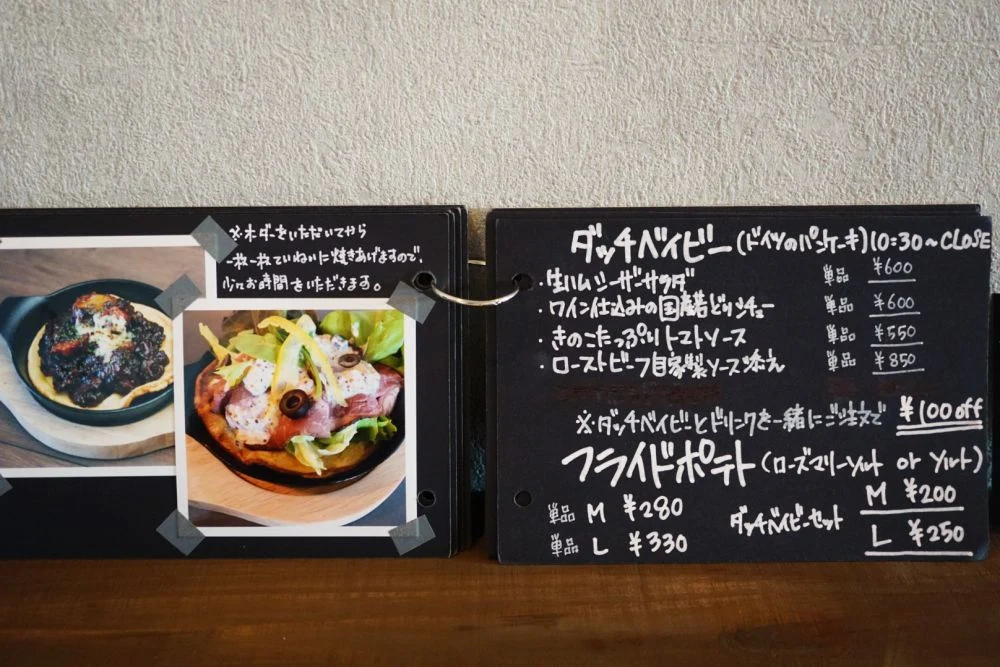 ※オーダーをいただいてから
一枚一枚ていねいに焼きあげますので、
少々お時間をいただきます。
ダッチベイビー(ドイツのパンケーキ)10:30~CLOSE
・生ハムシーザーサラダ 単品 ¥600
・ワイン仕込みの国産若どりシチュー 単品 ¥600
・きのこたっぷりトマトソース 単品 ¥550
・ローストビーフ自家製ソース添え 単品 ¥850
※ダッチベイビーとドリンクを一緒にご注文で ¥100off
フライドポテト(ローズマリーソルト or ソルト)
単品 M ¥280
単品 L ¥330
ダッチベイビーセット
M ¥200
L ¥250